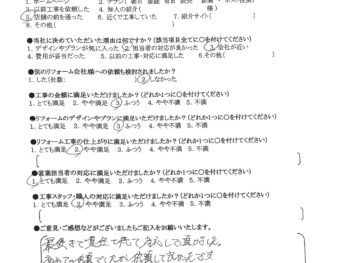 1. ホームページ 2. チラシ
3. 以前工事を依頼した 4. 知人の紹介(
5. 店舗の前を通った 6. 近くで工事していた 7. 紹介サイト(
8. その他(
●当社に決めていただいた理由は何ですか?(該当項目全てに○を付けてください)
1. デザインやプランが気に入った 2. 担当者の対応が良かった 3. 会社が近い
4. 費用が妥当だった 5. 以前の工事対応に満足していた 6. その他(
●別のリフォーム会社様への依頼も検討されましたか?
1. した(社数: ) 2. しなかった
●工事の金額に満足いただけましたか?(どれか1つに○を付けてください)
1. とても満足 2. やや満足 3. ふつう 4. やや不満 5. 不満
●リフォームのデザインやプランに満足いただけましたか?(どれか1つに○を付けてください)
1. とても満足 2. やや満足 3. ふつう 4. やや不満 5. 不満
●リフォーム工事の仕上がりに満足いただけましたか?(どれか1つに○を付けてください)
1. とても満足 2. やや満足 3. ふつう 4. やや不満 5. 不満
●営業担当者の対応に満足いただけましたか?(どれか1つに○を付けてください)
1. とても満足 2. やや満足 3. ふつう 4. やや不満 5. 不満
●工事スタッフ・職人の対応に満足いただけましたか?(どれか1つに○を付けてください)
1. とても満足 2. やや満足 3. ふつう 4. やや不満 5. 不満
●ご意見・ご感想などがございましたらご記入をお願いいたします。
最後まで責任を持って